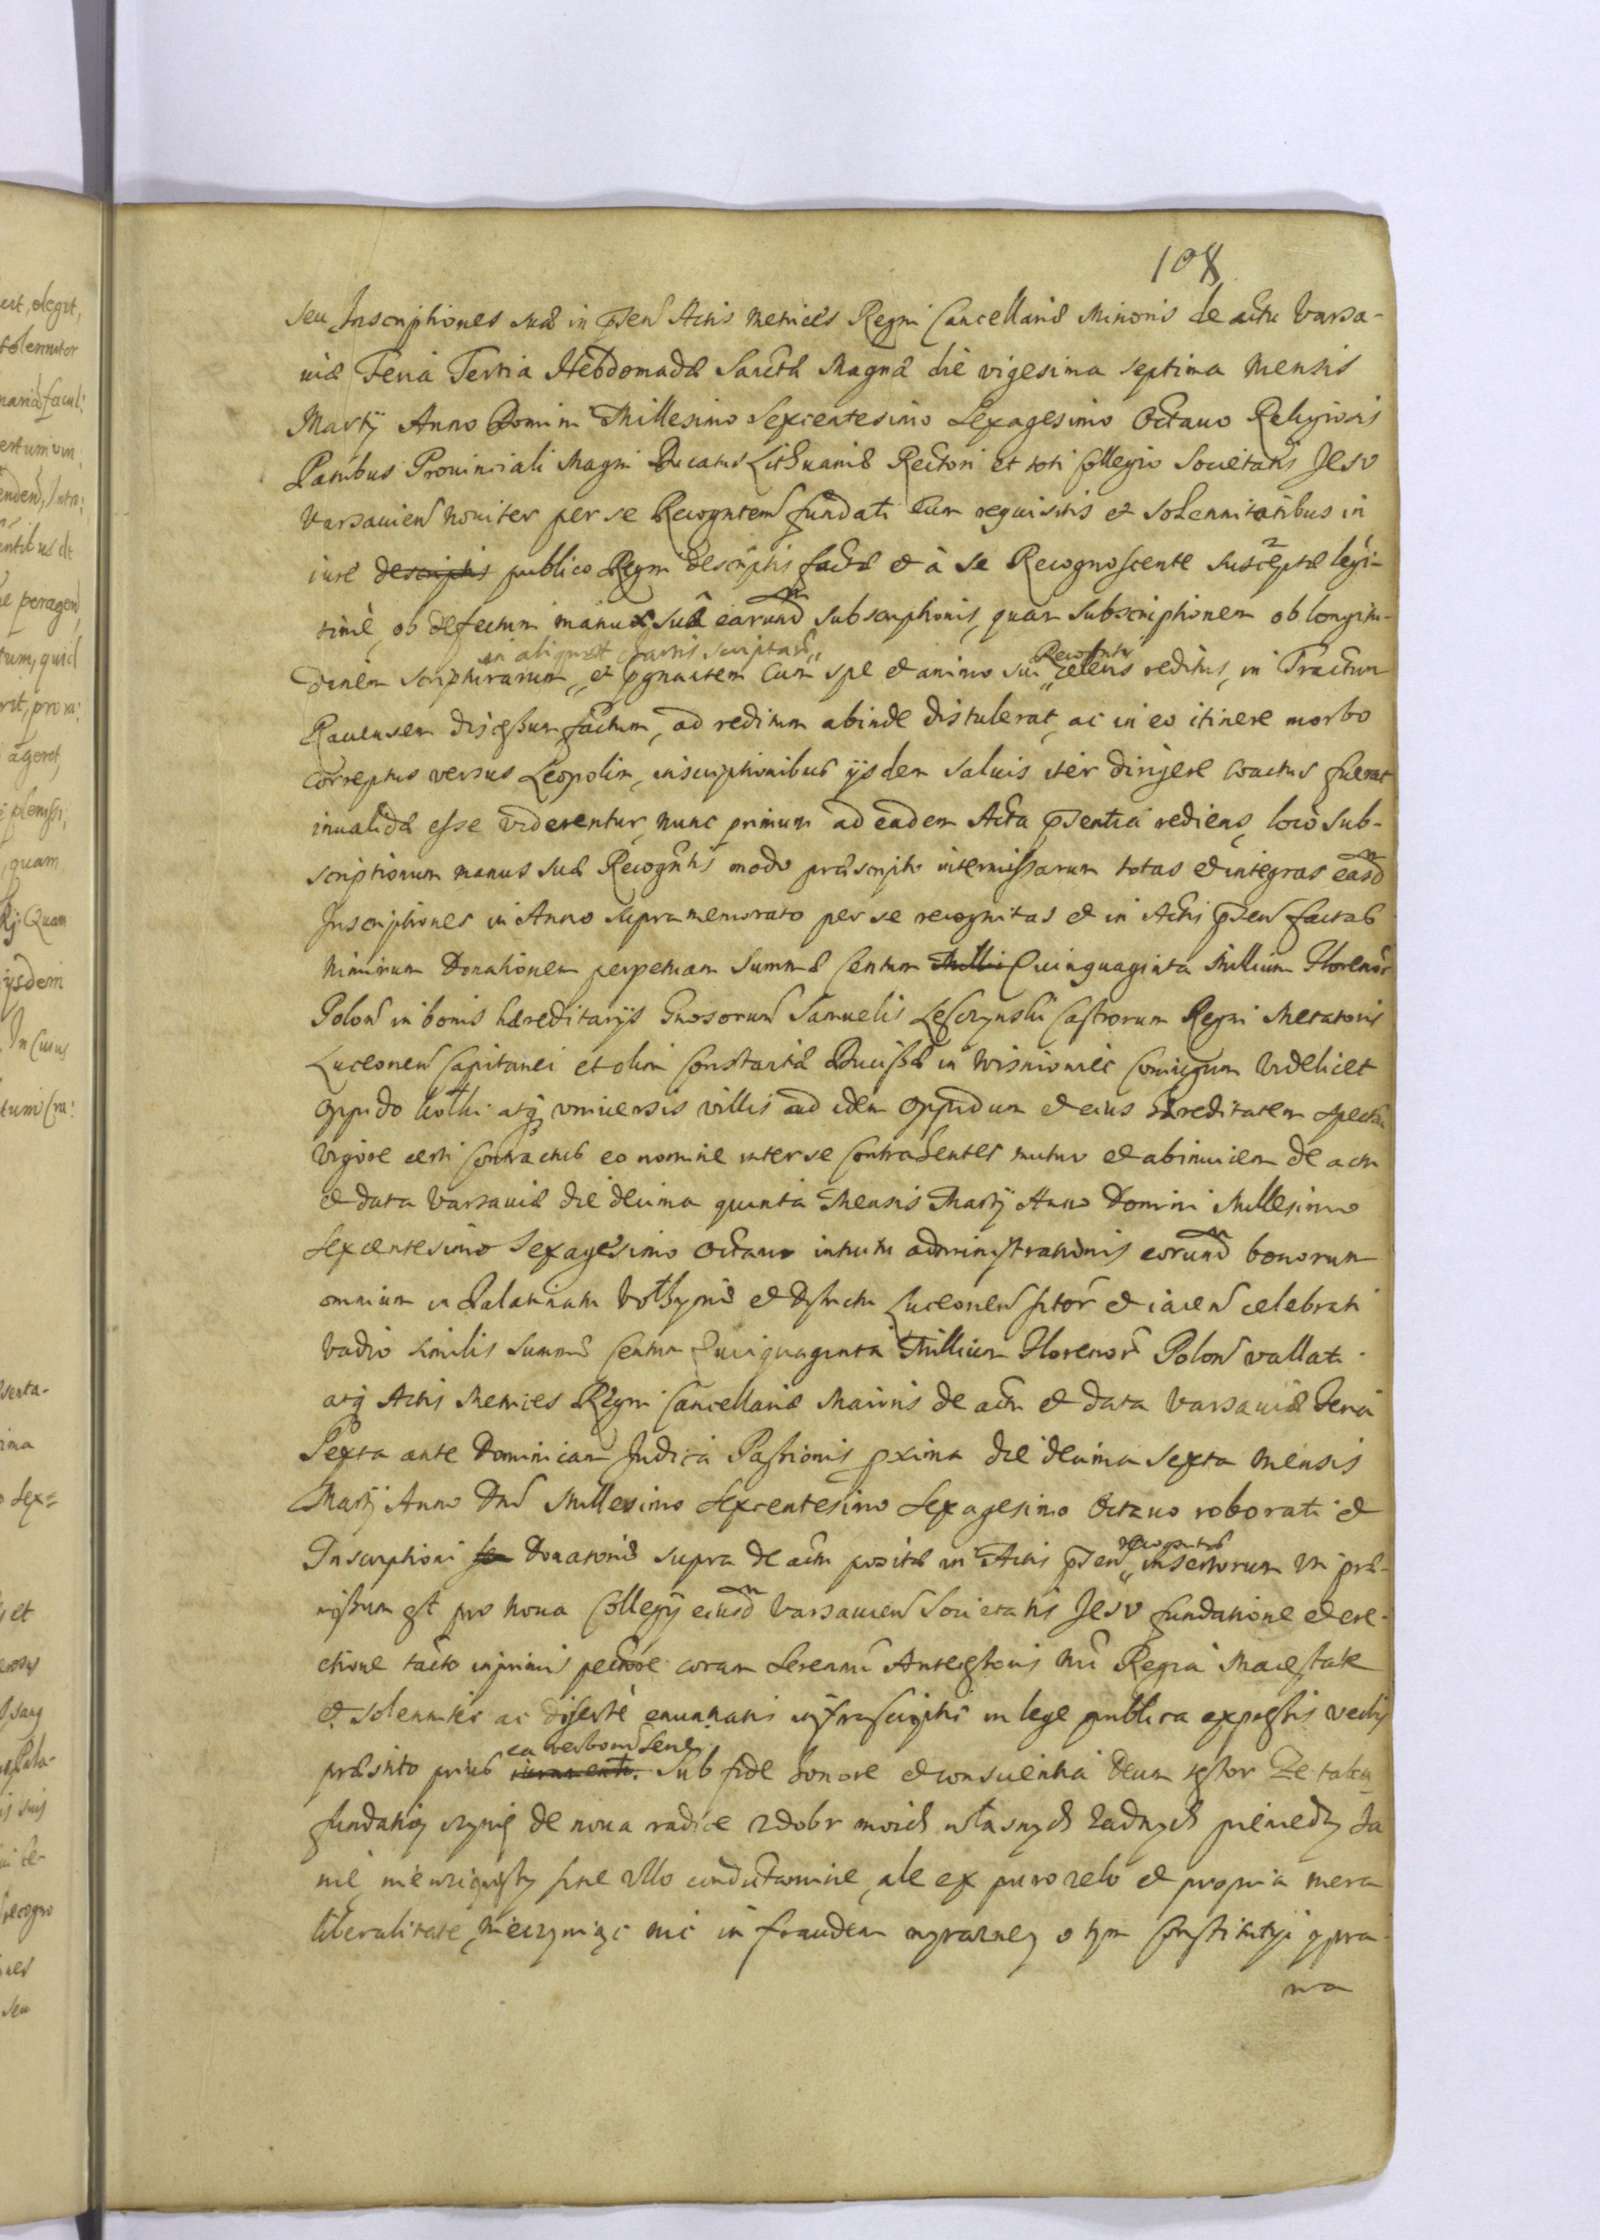 108
seu Inscriptiones suæ in pñseñ Actis Metrices Regni Cancellariæ Minoris de actu Varsa-
uiæ Feria Tertia Hebdomadæ Sanctæ Magnæ die vigesima septima Mensis
Martij Anno Domini Millesimo Sexcentesimo Sexagesimo Octauo Religiosis
Patribus Prouinciali Magni Ducatus Lithuaniæ Rectori et toti Collegio Societatis Jesv
Varsauieñ nouiter per se Recogntem fundati cum requisitis et solennitatibus in
iure descriptis publico Regni descriptis factæ et à se Recognoscente susceptæ legi-
timè, ob defectum manus suæ earund subscriptionis, quam subscriptionem ob longitu-
in aliquot chartis scriptarũ Recogntis
dinem scripturarum, et pgnantem cum spe et animo sui celeris reditus, in Tractum
Rauensem discessum factum, ad reditum abinde distulerat, ac in eo itinere morbo
correptus versus Leopolim, inscriptionibus ijsdem saluis iter dirigere coactus fuerat
inualidæ esse viderentur, nunc primum ad eadem Acta pñsentia rediens, loco sub-
scriptionum manus suæ Recogntis modo præscripto intermissarum totas et integras easd
Inscriptiones in Anno supramemorato per se recognitas et in Actis pñseñ factas
Nimirum Donationem perpetuam Summæ Centum Milli Quinquaginta Millium Florenor
Poloñ in bonis hæreditarijs Gnosorum Samuelis Lesczynski Castrorum Regni Metatoris
Luceoneñ Capitanei et olim Constantiæ Ducissæ in Wisniowiec Coniugum videlicet
Oppido atq vniuersis villis ad idem Oppidum et eius hæreditatem spectañ
Vigore certi Contractus eo nomine inter se Contrahentes mutuo et abinuicem de actu
et data Varsauiæ die decima quinta Mensis Martij Anno Domini Millesimo
Sexcentesimo Sexagesimo Octauo intuitu administrationis eorund bonorum
omnium in Palatinatu Volhyniæ et Districtu Luceoneñ sitor et iaceñ celebrati
Vadio similis Summæ Centum Quinquaginta Millium Florenor Poloñ vallati
atq Actis Metrices Regni Cancellariæ Maioris de actu et data Varsauiæ Feria
Sexta ante Dominicam Judica Passionis pxima die decima sexta Mensis
Martij Anno Dñi Millesimo Sexcentesimo Sexagesimo Octauo roborati et
recognitæ
Inscriptioni seu Donatoriæ supra de actu positæ in Actis pñseñ insertorum vti præ-
missum est pro noua Collegij eiusd Varsauieñ Societatis Jesv fundatione et ere-
ctione tacto inprimis pectore coram Serenmi Antecessoris Nri Regia Maiestate
et solenniter ac disertè enuntiatis infrascriptis in lege publica expressis verbis
ea verborũ serie
præstito prius iuramento. Sub fide honore et conscientia Deum testor Ze taką
fundatią czynię de noua radice z dobr moich własnych żadnych pieniedzy na
nie nie wziąwszy sine vllo condictamine, ale ex puro zelo et propria mera
liberalitate, nieczyniąc nic in fraudem wyrazney o tym Constitutij y pra-
wa